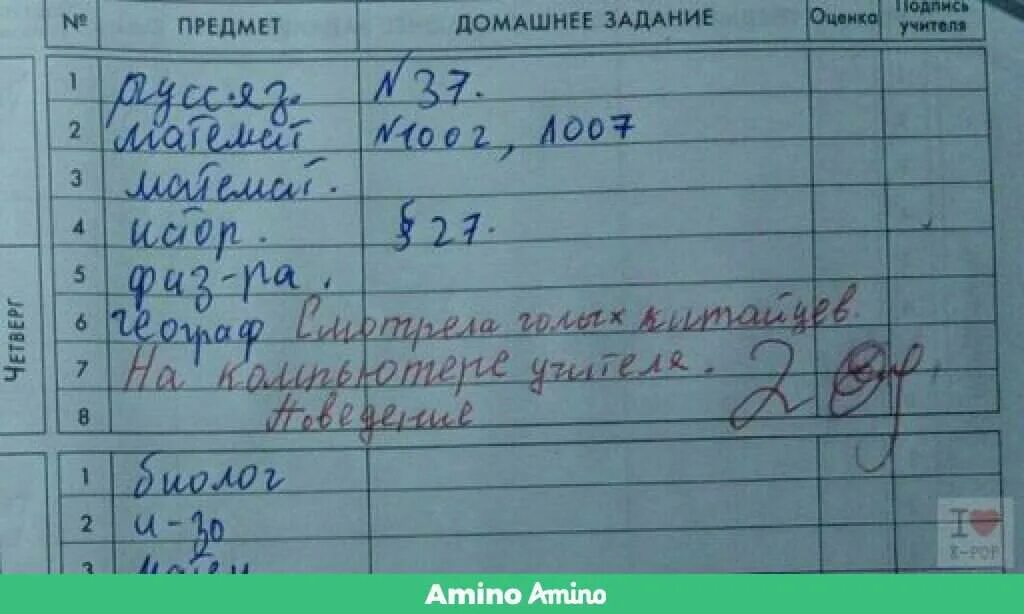 № ПРЕДМЕТ ДОМАШНЕЕ ЗАДАНИЕ Оценка Подпись учителя
ЧЕТВЕРГ
1 русс.яз. №37.
2 математ №1002, 1007
3 математ.
4 истор. § 27.
5 физ-ра.
6 географ Смотрела голых китайцев.
7 На компьютере учителя. 2
8 Поведение
1 биолог
2 и-зо
3 матем
I ❤ K-POP
Amino Amino